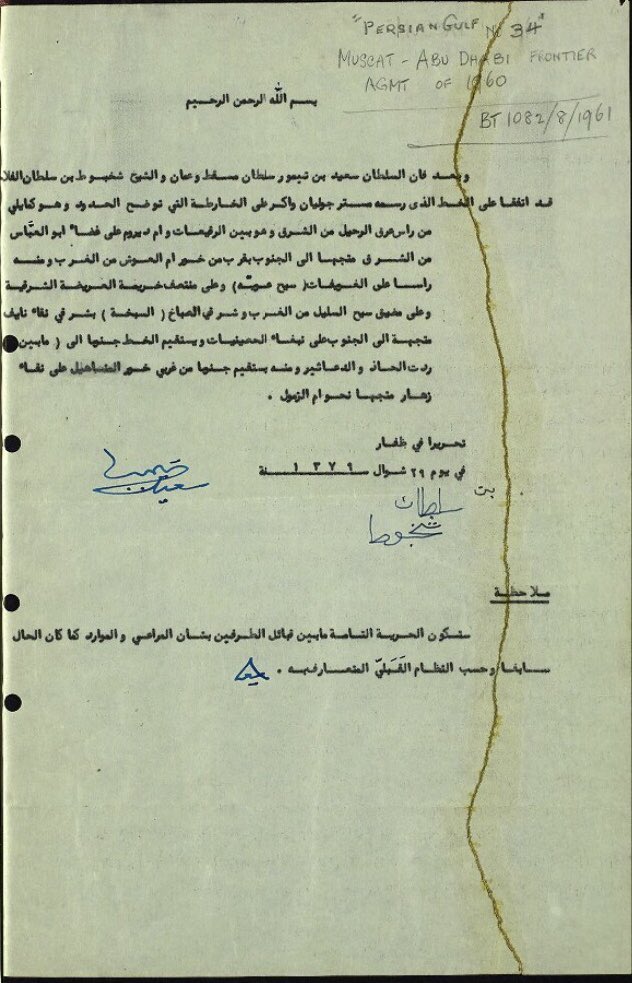 "PERSIAN GULF No 34"
MUSCAT - ABU DHABI FRONTIER
AGMT OF 1960
BT 1082/8/1961
بسم الله الرحمن الرحيم
وبعد فان السلطان سعيد بن تيمور سلطان مسقط وعمان والشيخ شخبوط بن سلطان الفلا
قد اتفقا على الخط الذى رسمه مستر جوليان واكر على الخارطة التي توضح الحدود وهو كمايلي
من راس عرق الرحيل من الشرق وهو بين الرقيعات وام ديروم على غضا ابو العبّاس
من الشرق متجها الى الجنوب بقرب من خور ام العوش من الغرب ومنه
راسا على الخريفات (سيح عويّه) وعلى منتصف خريمة الحريضة الشرقية
وعلى مضيق سيح السليل من الغرب وشرفي الصباخ (السبخة) بشرفي نقاء نايف
متجهة الى الجنوب على نبغاء الحصينيات ويستقيم الخط جنوبا الى (مابين
ردت الحاذ والدعاشير ومنه يستقيم جنوبا من غربي خور على نقاء
زهار متجها نحو ام الزمول .
تحريرا في ظفار
في يوم ٢٩ شوال ١٣٧٩ سنة
سعيد بن
سلطان
شخبوط
ملاحظة
ستكون الحرية التامة مابين قبائل الطرفين بشان المراعي والموارد كما كان الحال
سابقا وحسب النظام القَبَليّ المتعارف به .